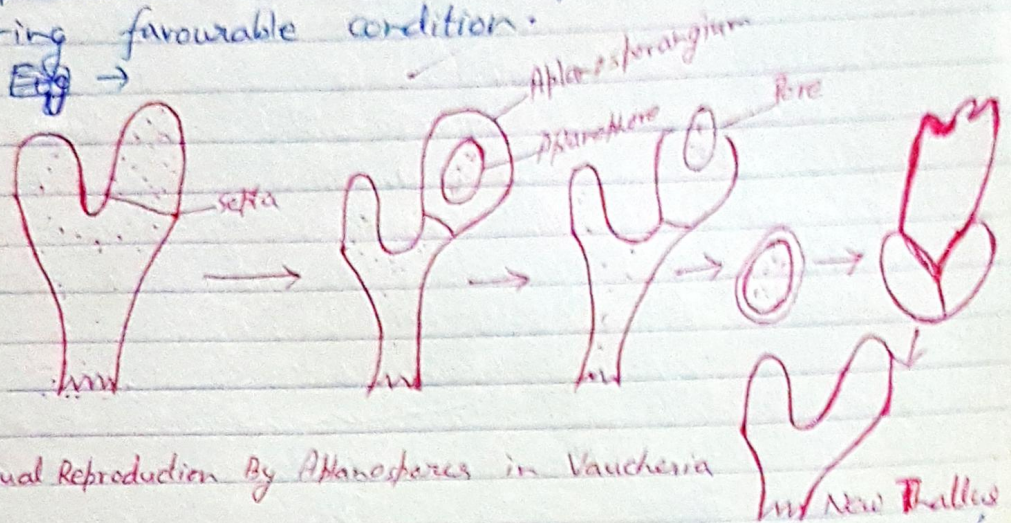 -ing favourable condition.
Eg →
Aplanosporangium
Pore
Aplanosphore
septa
ual Reproduction By Aplanospores in Vaucheria
New Thallus